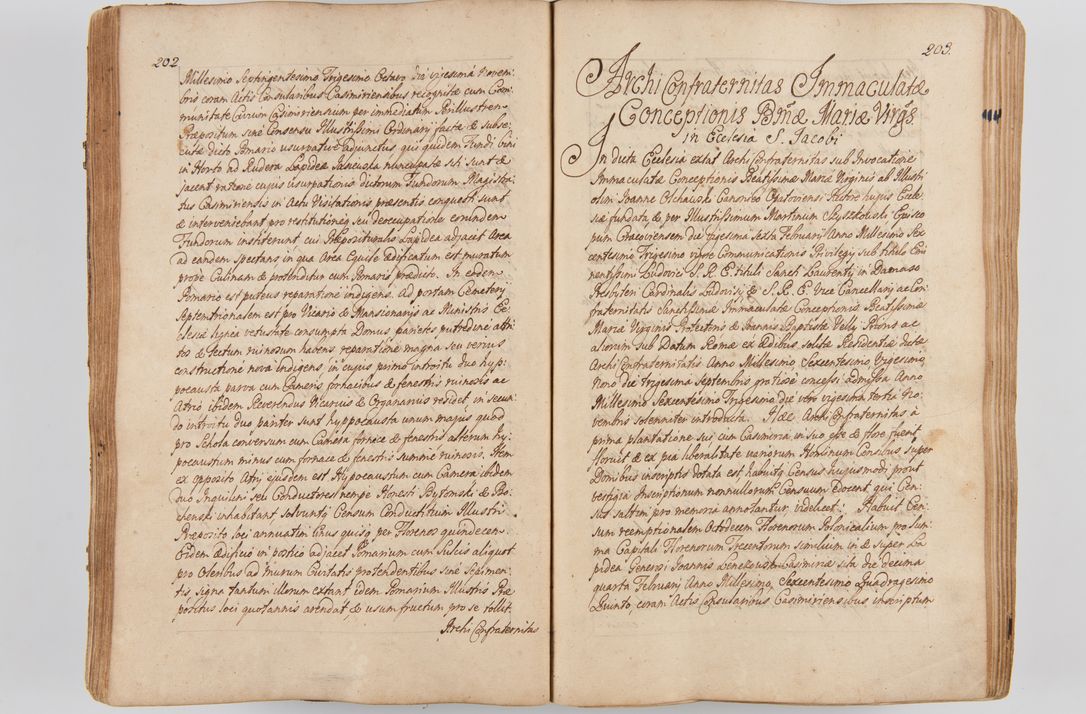 202.
Millesimo Septingentesimo Trigesimo Octavo die vigesima Novem-
bris coram Actis Consularibus Casimiriensibus recognita cum Com-
munitate Civium Casimiriensium per immediatum Perillustrem
Præpositum sine Consensu Illustrissimi Ordinarij facta & subse-
cuta dicto Pomario usurpative adjunctus qui quidem Fundi bini
in Horto ad Rudera Lapidea Jasicuska nuncupata siti sunt &
jacent ratione cujus usurpationis dictorum Fundorum Magistra-
tus Casimiriensis in Actu Visitationis præsentis conquesti sunt
& interveniebant pro restitutione seu deoccupatione eorundem
Fundorum institerunt cui Præposituralis Lapidea adjacet Area
ad eandem spectans in qua Area Equile Ædificatum est muratum
prope Culinam & protenditur cum Pomario prædicto. In eodem
Pomario est puteus reparatione indigens. Ad portam Cemeterij
Septentrionalem est pro Vicario & Mansionarijs ac Ministris Ec-
clesiæ lignea vetustate consumpta Domus parietes putredine attri-
tos & tectum ruinosum habens reparatione magna seu verius
constructione nova indigens, in cujus primo introitu duo hyp-
pocausta parva cum Cameris fornacibus & fenestris ruinosis ac
Atrio ibidem Reverendus Vicarius & Organarius residet, in secun-
do introitu duo pariter sunt hyppocausta unum majus quod
pro Schola conversum cum Camera fornace & fenestris alterum hy-
pocaustum minus cum fornace & fenestris summe ruinosis. Item
ex opposito Atrij ejusdem est Hypocaustum cum Camera ibidem
duo Inquilini seu Conductores nempe Honesti Bytomski & Bo-
chenski inhabitant, solvunt Censum Conductitium Illustri
Præposito loci annuatim Unus quisq per Florenos quindecem.
Eidem Ædificio in postico adjacet Pomarium cum Sulcis aliquot
pro Oleribus ad murum Civitatis protendentibus sine Sepimen-
tis, signa tantum illorum extant idem Pomarium Illustris Præ-
positus loci quotannis arendat & usum fructum pro se tollit.
Archi Confraternitas
203.
Archi Confraternitas Immaculatæ
Conceptionis Bmæ Mariæ Virgs
in Ecclesia S. Jacobi
In dicta Ecclesia extat Archi Confraternitas sub Invocatione
Immaculatæ Conceptionis Beatissimæ Mariæ Virginis ab Illustri
olim Joanne Olchawski Canonico Opatoviensi Pastore hujus Eccle-
siæ fundata, & per Illustrissimum Martinum Szyszkowski Episco-
pum Cracoviensem die vigesima sexta Februarij Anno Millesimo Sex-
centesimo Trigesimo vigore Communicationis Privilegij sub titulo Emi-
nentissimi Ludovici S. R. E. tituli Sancti Laurentij in Damaso
Presbiteri Cardinalis Ludovisij & S. R. E. Vice Cancellarij ac Con-
fraternitatis Sanctissimæ Immaculatæ Conceptionis Beatissimæ
Mariæ Virginis Protectoris & Joannis Baptistæ Vellij Prioris ac
aliorum sub Datum Romæ ex Ædibus solitæ Residentiæ dictæ
Archi Confraternitatis Anno Millesimo Sexcentesimo Vigesimo
Nono die Trigesima Septembris gratiose concessi admissa Anno
Millesimo Sexcentesimo Trigesimo die vero vigesima tertia No-
vembris solenniter introducta. Hæc Archi Confraternitas à
prima plantatione sui, cum Casimiria in suo esse & flore fuerit,
floruit & ex pia liberalitate variorum Hominum Censibus super
Domibus inscriptis dotata est, habuitq Census hujusmodi prout
vestigia Inscriptionum nonnullorum Censuum docent, qui Cen-
sus saltim pro memoria annotantur, videlicet: Habuit Cen-
sum reemptionalem Octodecem Florenorum Polonicalium pro Sum-
ma Capitali Florenorum Trecentorum similium in & super La-
pidea Generosi Joannis Casimiriæ sita die decima
quarta Februarij Anno Millesimo Sexcentesimo Quadragesimo
Quinto, coram Actis Consularibus Casimiriensibus inscriptum